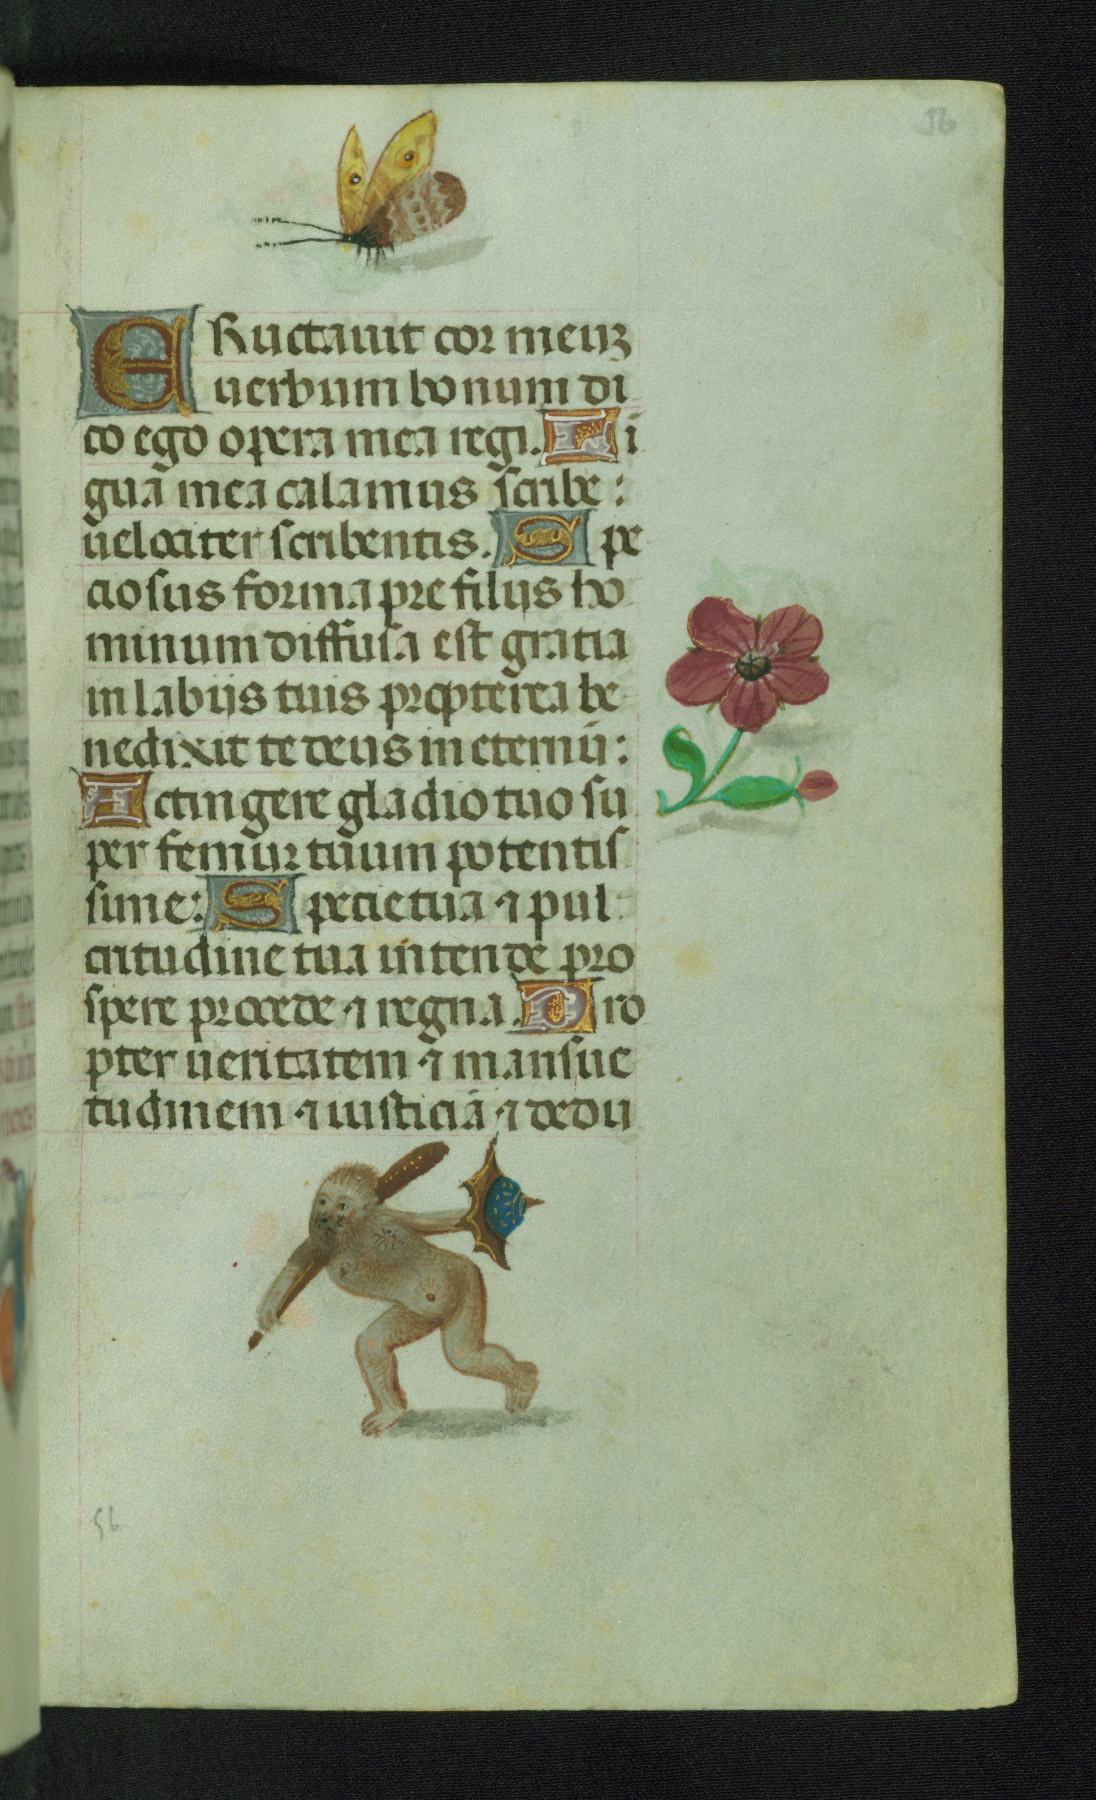 56
ERuctauit cor meuz
uerbum bonum di
co ego opera mea regi. Li
guā mea calamus scribe :
uelociter scribentis. Spe
ciosus forma pre filijs ho
minum diffusa est gratia
in labijs tuis propterea be
nedixit te deus in eternū :
Accingere gladio tuo su
per femur tuum potentis
sime : Specie tua ⁊ pul
critudine tua intende pro
spere procede ⁊ regna. Pro
pter ueritatem ⁊ mansue
tudinem ⁊ iusticiā ⁊ dedu
56